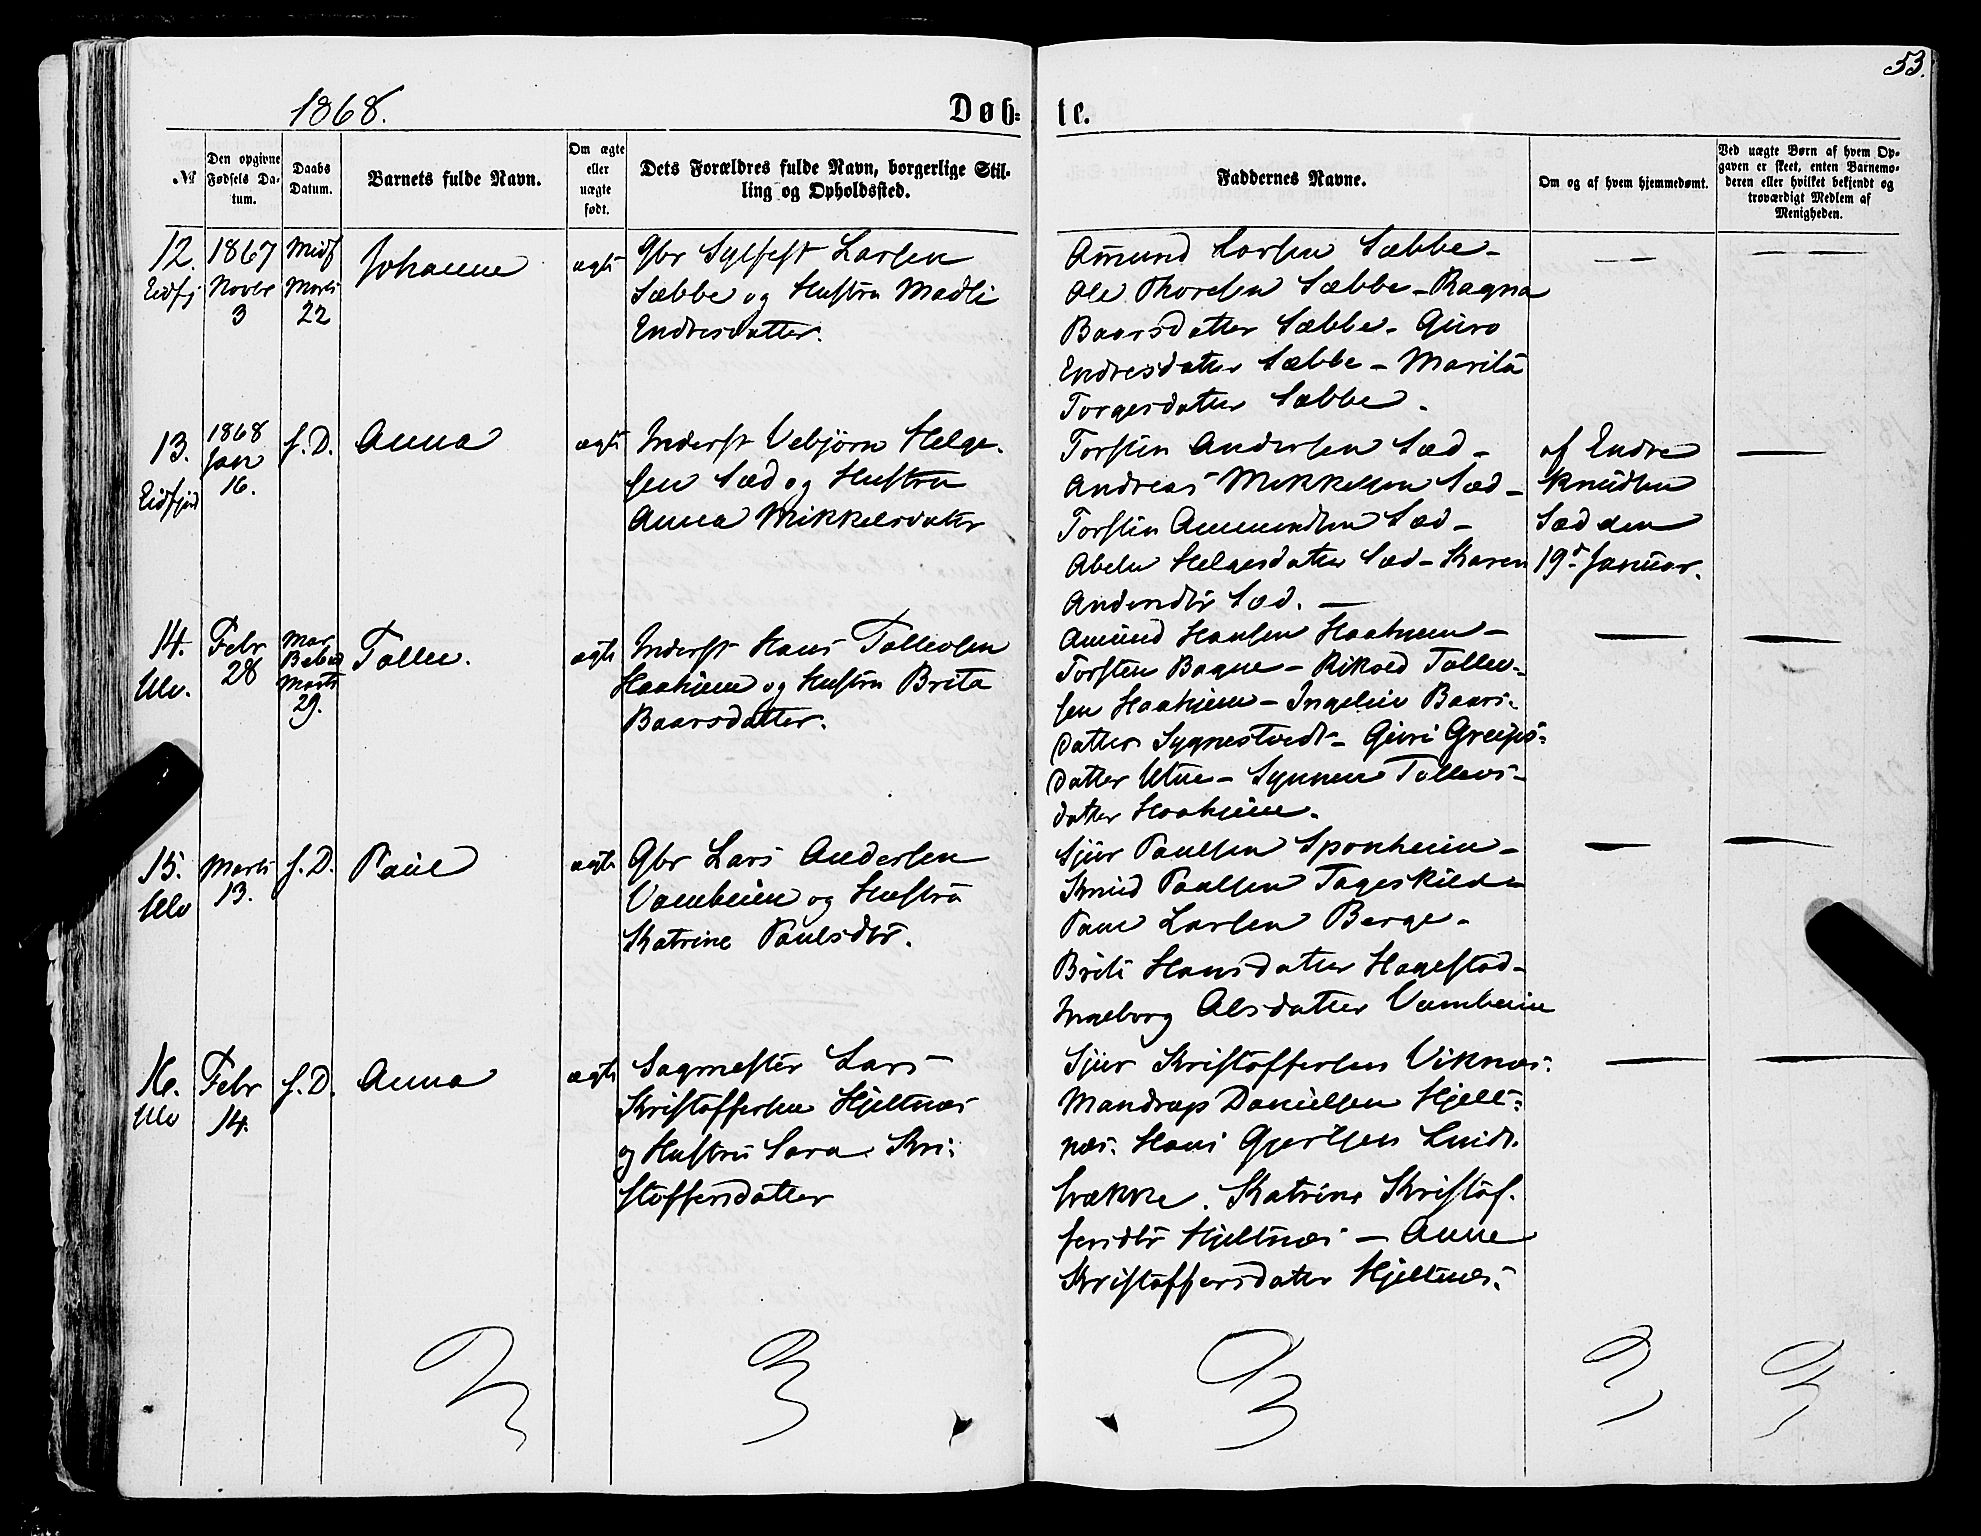 53.
1868.
Døb-
te.
№
Den opgivne Fødsels Da-
tum.
Daabs Datum.
Barnets fulde Navn.
Om ægte eller uægte født.
Dets Forældres fulde Navn, borgerlige Stil-
ling og Opholdssted.
Faddernes Navne.
Om og af hvem hjemmedøbt.
Ved uægte Børn af hvem Op-
gaven er skeet, enten Barnemo-
deren eller hvilket bekjendt og
troværdigt Medlem af
Menigheden.
12.
Eidfj
1867
Novbr
3
Midf
Marts
22
Johanne
ægte
Gbr Sylfest Larsen
Sæbbe og Hustru Madli
Endresdatter.
Amund Larsen Sæbbe -
Ole Thorsen Sæbbe - Ragna
Baarsdatter Sæbbe - Guro
Endresdatter Sæbbe - Marita
Torgersdatter Sæbbe.
— —
— — —
13.
Eidfjord
1868
Jan
16.
s. D.
Anna
ægte
Inderst Vebjørn Helge-
sen Sæd og Hustru
Anna Mikkelsdatter
Torstein Andersen Sæd -
Andreas Mikkelsen Sæd -
Torstein Ammundsen Sæd -
Abelu Helgesdatter Sæd - Karen
Andersdtr Sæd. —
af Endre
Knudsen
Sæd den
19d Januar.
—
14.
Ulv.
Febr
28
Mar
Bebud
Marts
29.
Tollev.
ægte
Inderst Hans Tollevsen
Haaheim og Hustru Brita
Baarsdatter.
Amund Hansen Haaheim -
Torsten Bagne - Rikold Tollev-
sen Haaheim - Ingeliv Baars-
datter Sygnestvedt - Guri Greips-
datter Utne - Synneve Tollevs-
datter Haaheim.
—
—
15.
Ulv
Marts
13.
s. D.
Paul
ægte
Gbr Lars Andersen
Vambeim og Hustru
Katrine Paulsdtr.
Sjur Paulsen Sponheim -
Knud Paulsen Tageskild -
Paul Larsen Berge -
Brita Hansdatter Hagestad -
Ingeborg Olsdatter Vambeim
—
—
16.
Ulv
Febr
14.
s. D.
Anna
ægte
Sagmester Lars
Kristoffersen Hjeltnæs
og Hustru Sara Kri-
stoffersdatter
Sjur Kristoffersen Viknæs.
Mandrup Danielsen Hjelt-
næs. Hans Gjertsen Lind-
brække. Katrine Kristof-
fersdtr Hjeltnæs — Anne
Kristoffersdatter Hjeltnæs.
—
—